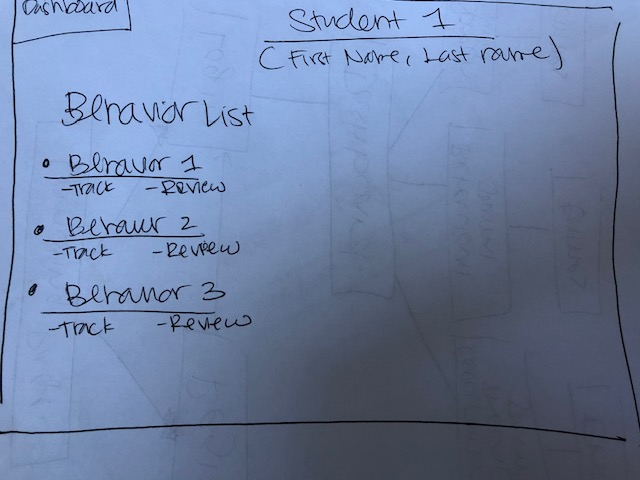 Dashboard
Student 1
(First Name, Last name)
Behavior List
• Behavior 1
-Track -Review
• Behavior 2
-Track -Review
• Behavior 3
-Track -Review